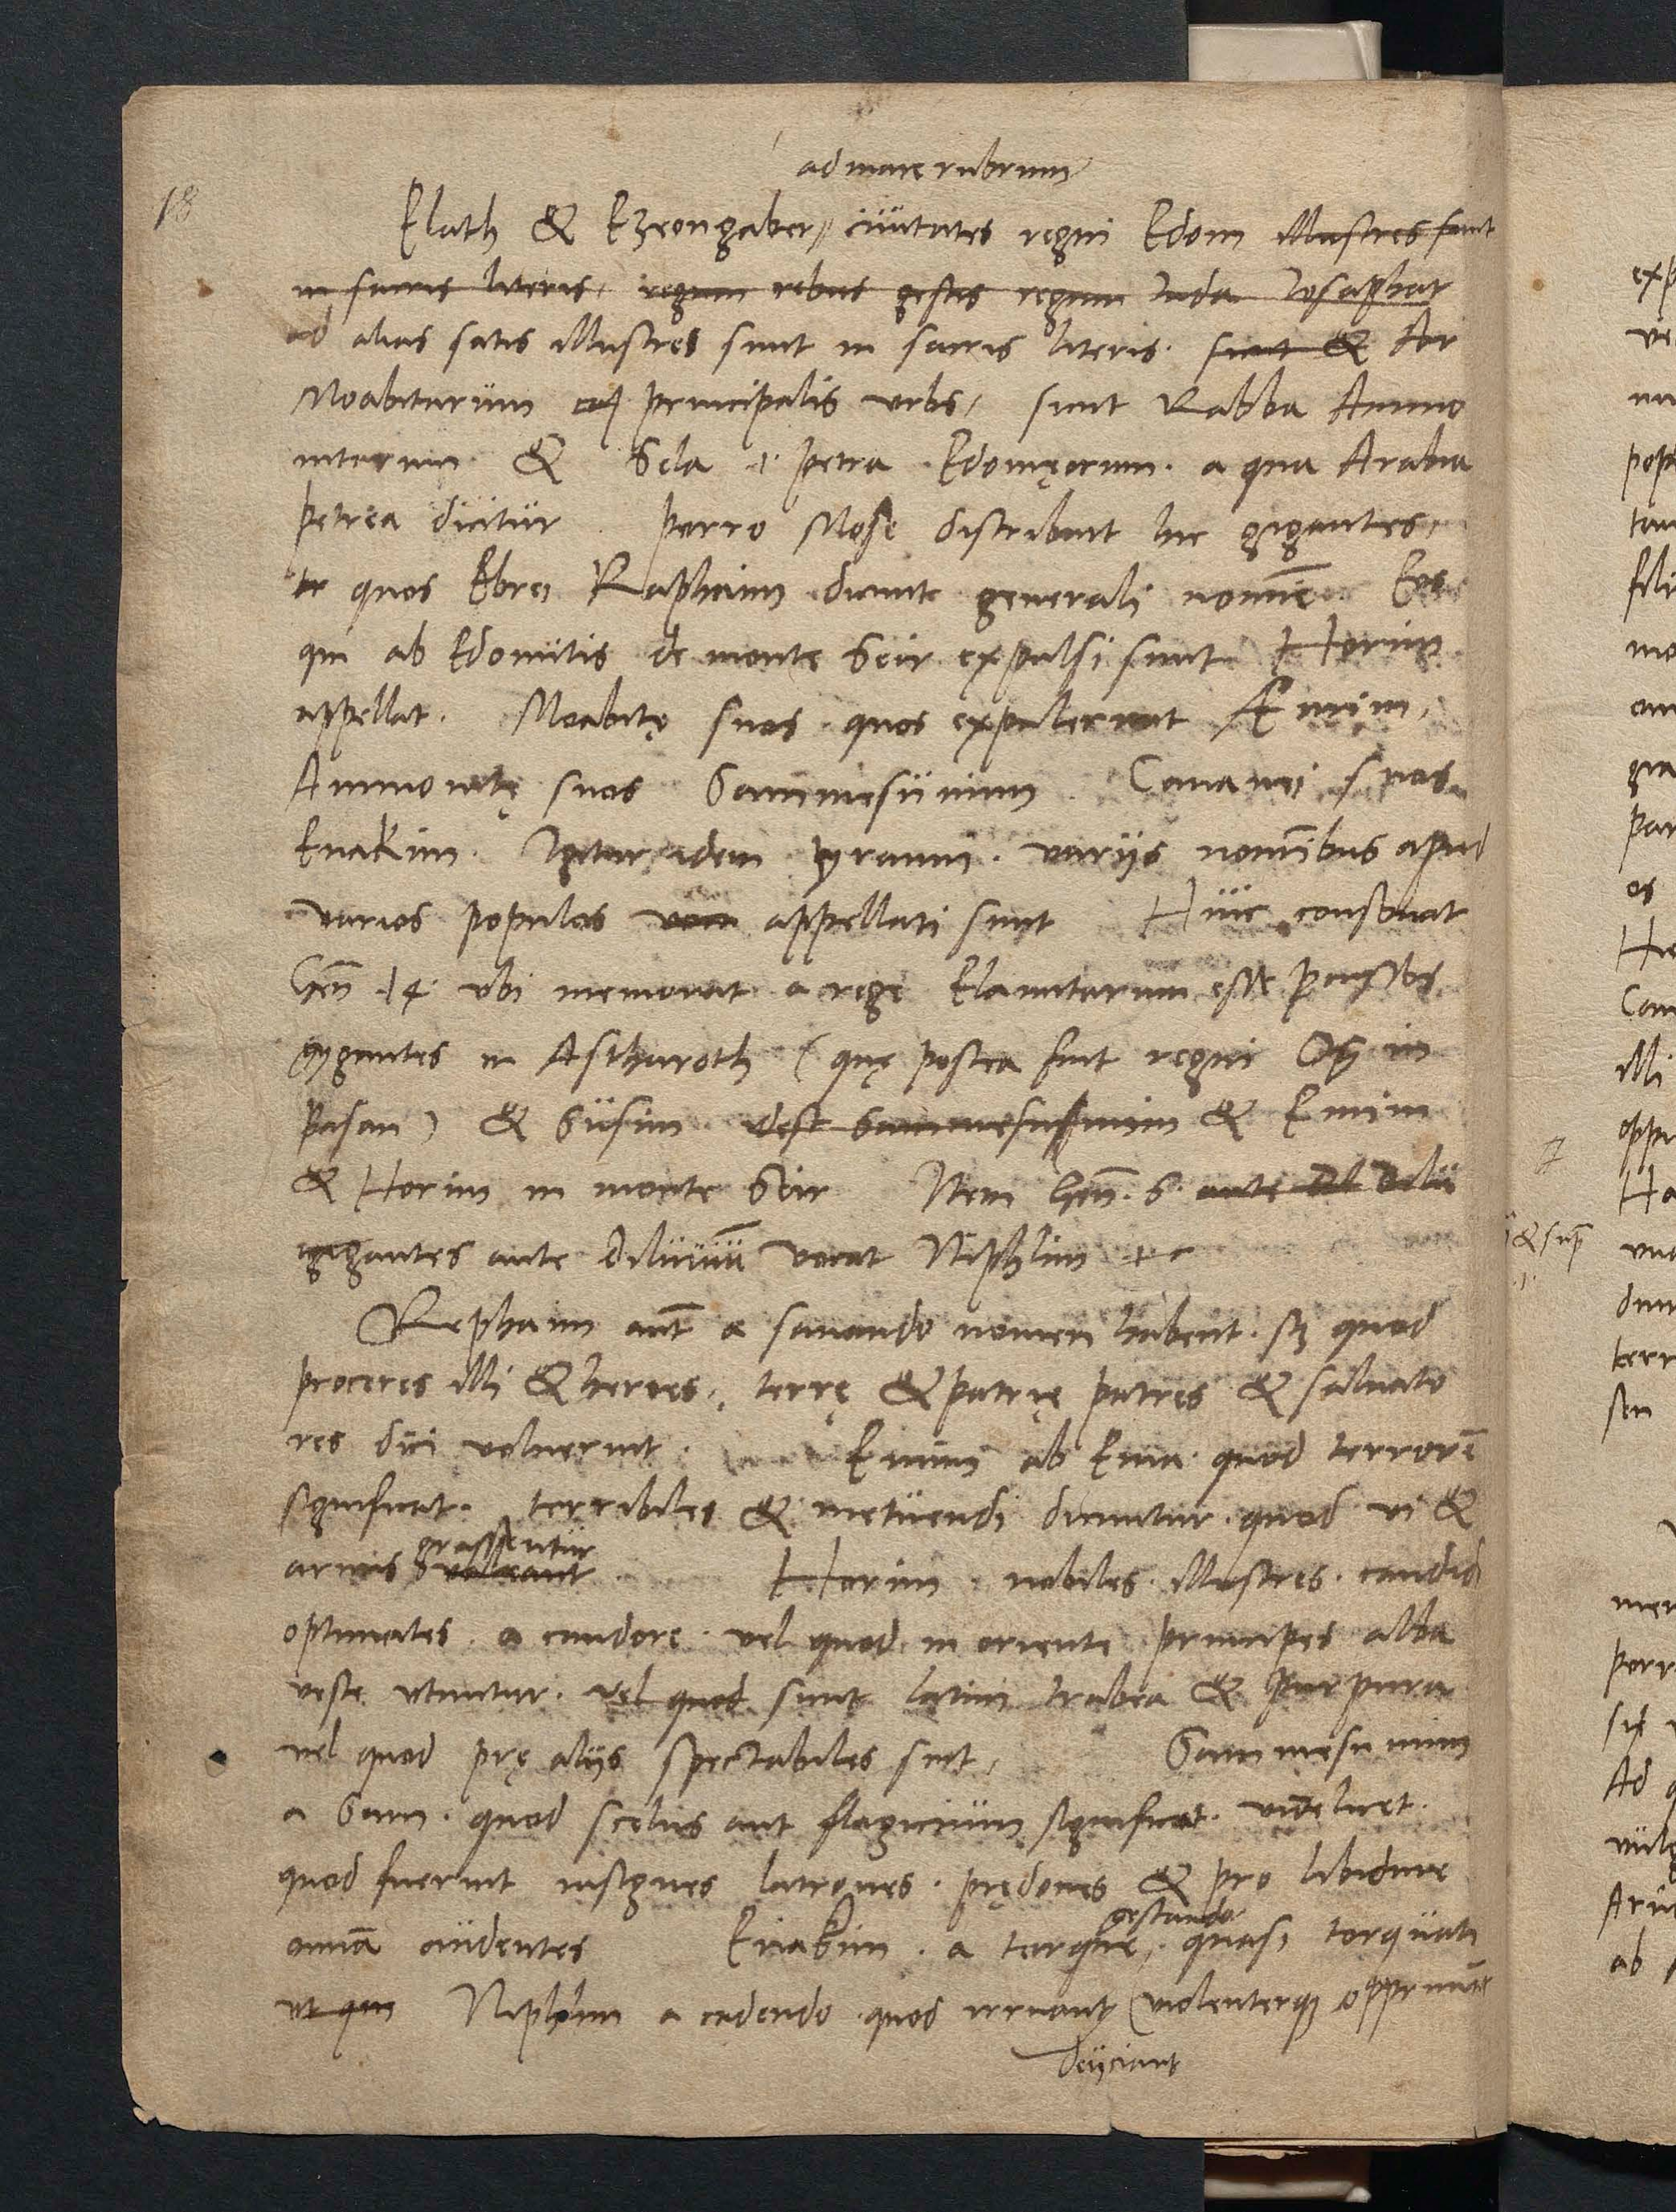 ad mare rubrum
18
Elath & Ezeongaber, ciuitates regni Edom illustres sunt
in sacris literis, regum rebus gestis regum Iuda Iosaphat
ad alias satis illustres sunt in sacris literis. sicut & Ar
Moabitarum principalis vrbs, sicut Rabba Ammo
nitarum & Sela .i. petra Edomęorum. a qua Arabia
petrea dicitur. Porro Mose distribuit hic gigantes,
quos Ebrei Raphaim dicunt generali nomīe Eos
qui ab Edomitis de monte Seir expulsi sunt Horim
appellat. Moabitę suos quos expulerunt Emim,
Ammonitę suos Sammesumim. Cananei suos
Enakim. Igitur idem tyranni. varijs nomībus apud
varios populos appellati sunt Huic consonat
Geñ 14. vbi memorat a rege Elamitarum esse percussos
gygantes in Astharoth (quę postea fuit regni Og in
Basan) & Susim idest Sammesumim & Emim
& Horim in monte Seir Item Geñ. 6. ante Dil Dilu
gigantes ante Diluuiū vocat Niphlim
Rephaim aut̄ a sanando nomen habent. sꝫ quod
proceres illi & heroes, terrę & patrię patres & saluato
res dici voluerint. Emim ab Ema. quod terrorē
significat. terribiles & metuendi dicuntur. quod vi &
grassentur
armis valeant Horim. nobiles. illustres. candidi
optimates. a candore. vel quod in oriente principes alba
veste vtuntur. vel quod sicut latini trabea & purpura
vel quod prę alijs spectabiles sint, Sammesumim
a Sam. quod scelus aut flagicium significat. videlicet.
quod fuerint insignes latrones. prędones & pro libidine
gestando
omīa audentes Enakim. a torque, quasi torquati
ut qui Niphlim a cadendo. quod irruant violenterqꝫ opprimāt
deijciant